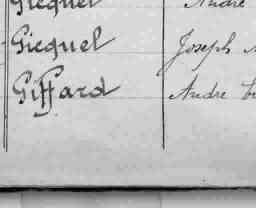 Gicquel Andre
Gicquel Joseph
Giffard Andre